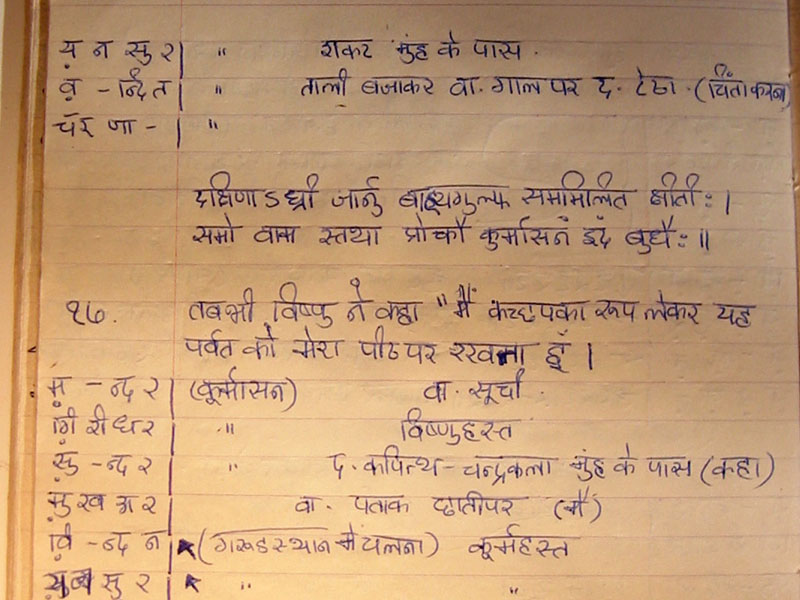 य न सु र | " शकट मुंह के पास .
व - न्दि त | " ताली बजाकर वा. गाल पर द. टेढा . (चिंता करना)
चँ द्र जा - | "
दक्षिणा ऽ घ्री जार्नु बाह्यगुल्फ सममिलित क्षीती: |
समो वाम स्तथा प्रोक्तौ कुर्मासनं इदं बुधै: ||
१७. तबभी विष्णु ने कहा "मैं कच्छपका रूप लेकर यह
पर्वत को मेरा पीठपर रखता हूँ |
म - न्द र | (कूर्मासन) वा. सूची .
गि री ध र | " विष्णुहस्त
सु - न्द र | " द. कपित्थ - चन्द्रकला मुंह के पास (कहा)
मु ख म र | वा. पताक छातीपर (मैं)
वि - न्द न | (गरूडस्थान मे चलना) कूर्महस्त
सु र | " "